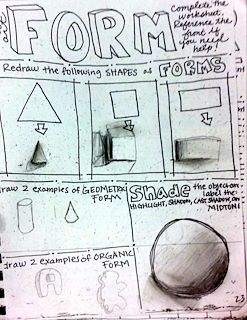 FORM
Complete the
worksheet.
Reference the
front if
you need
help!
Redraw the following SHAPES as FORMS
Draw 2 examples of GEOMETRIC
FORM
Shade the object on-
label the:
HIGHLIGHT, SHADOW, CAST SHADOW, AND
MIDTONE
Draw 2 examples of ORGANIC
FORM
23